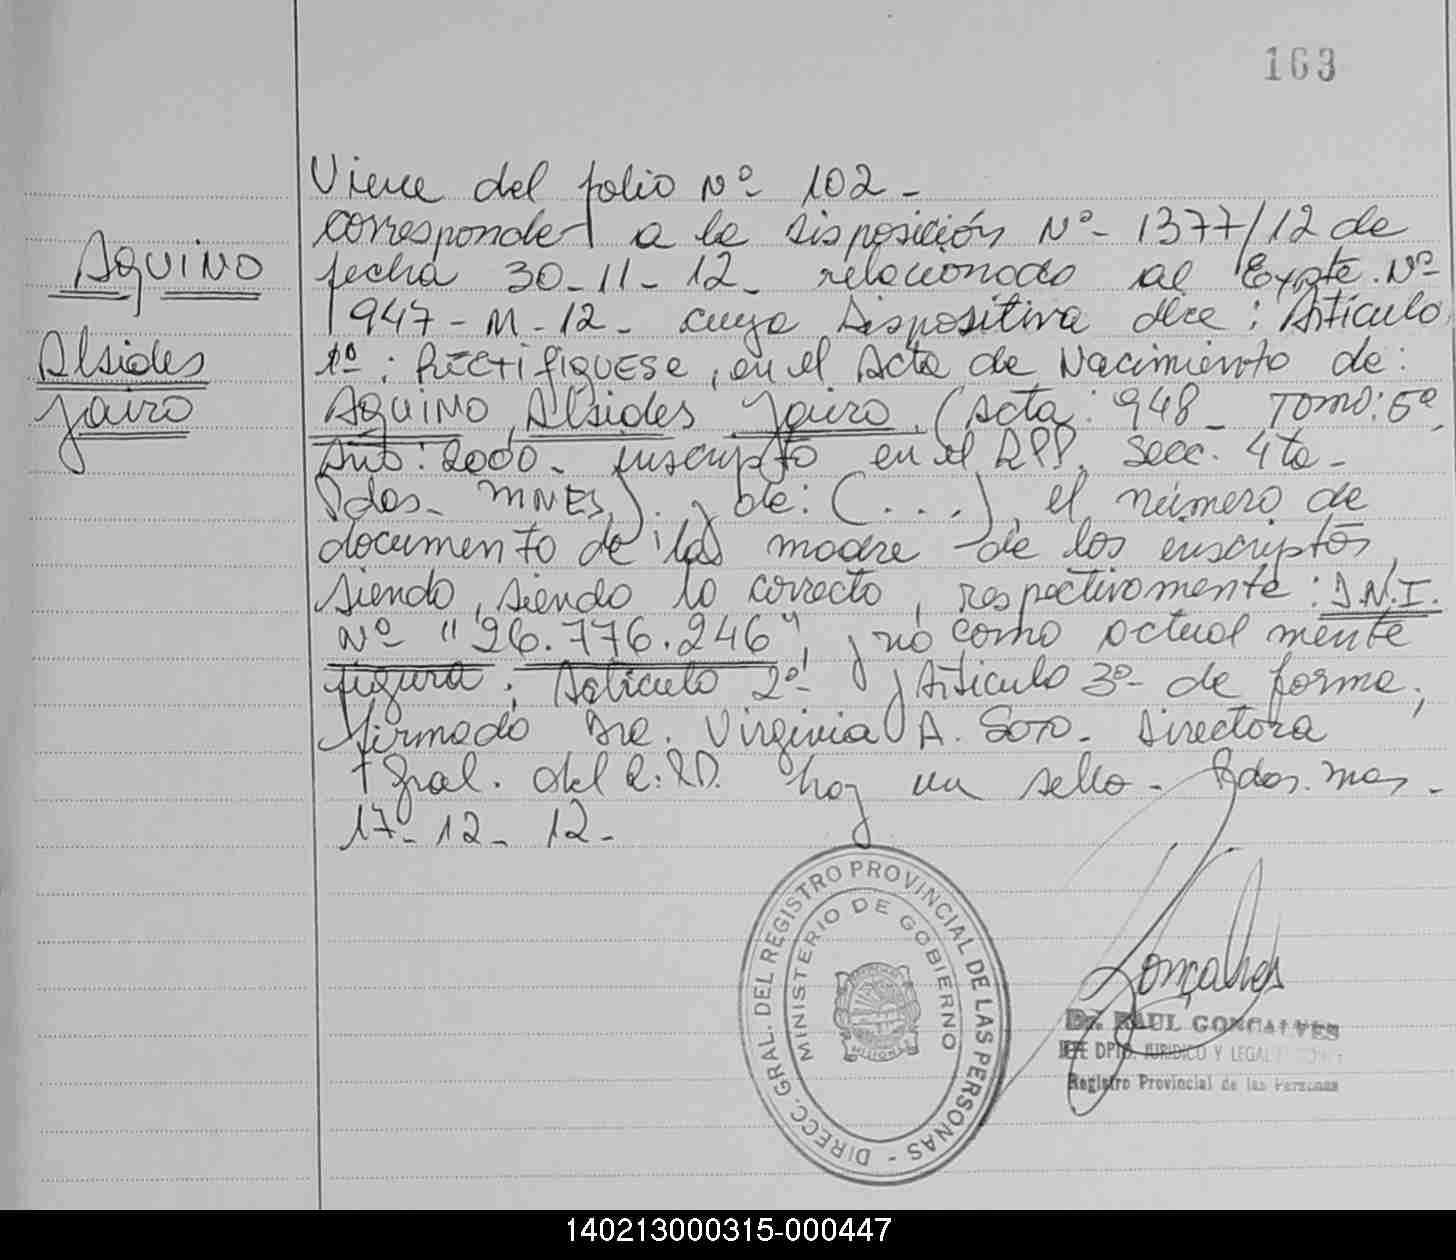 163
Viene del folio Nº 102 -
corresponde a la disposición Nº- 1377/12 de
AQUINO
fecha 30-11-12- relacionado al Expte. Nº
1947-M-12- cuya dispositiva dice: Artículo
Alsides
1º: RECTIFIQUESE, en el Acta de Nacimiento de:
Jairo
AQUINO, Alsides Jairo, (Acta: 948- Tomo: 5º,
Año: 2000- inscripto en el RPP, Secc. 4ta-
Pdas- MNES). y de: (...), el número de
documento de las madre de los inscriptos,
siendo, siendo lo correcto, respectivamente: D.N.I.
Nº "26.776.246", y no como actualmente
figura; Artículo 2º- y Artículo 3º- de forma;
firmado Dra. Virginia A. Soto- Directora
Gral. del R.P.P. hay un sello- Pdas. Mnes-
17-12-12-
DIRECC. GRAL. DEL REGISTRO PROVINCIAL DE LAS PERSONAS -
MINISTERIO DE GOBIERNO
MISIONES
Gonçalves
Dr. RAUL GONCALVES
JEFE DPTO. JURIDICO Y LEGAL
Registro Provincial de las Personas
140213000315-000447